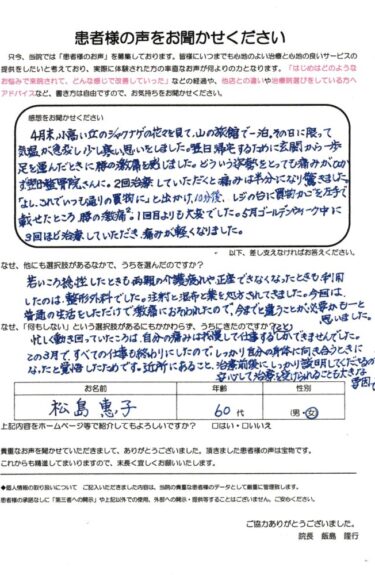 患者様の声をお聞かせください
只今、当院では「患者様のお声」を募集しております。皆様にいつまでも心地のよい治療と心地の良いサービスの
提供をしたいと考えており、実際に体験された方の率直なお声が何よりの力となります。「はじめはどのような
お悩みで来院されて、どんな感じで改善していった」などの経過や、他店との違いや治療院選びをしている方へ
アドバイスなど、書き方は自由ですので、お気持ちをお聞かせください。
感想をお聞かせください
4月末、小高い丘のシャクナゲの花々を見て、山の旅館で一泊。その日に限って
気温が急変し少し寒い思いをしました。翌日帰宅するために玄関から一歩
足を運んだときに腰の激痛を感じました。どういう姿勢をとっても痛みがひか
ず 整骨院さんに。2回治療していただくと痛みは半分になり驚きました。
「よし、これでいつも通りの買物に」と出かけ10分後、レジの台に買物かごを左手で
載せたところ 腰の激痛². 1回目よりも大変でした。5月ゴールデンウィーク中に
3回ほど治療していただき、痛みが軽くなりました。
以下、差し支えなければお答えください。
なぜ、他にも選択肢があるなかで、うちを選んだのですか?
若いころ捻挫したときも両親の介護疲れや正座できなくなったときも利用
したのは、整形外科でした。注射と湿布と薬を処方されてきました。今回は、
普通の生活をしただけで激痛におそわれたので、今までと違うことが必要かも…と
思いました。
なぜ、「何もしない」という選択肢があるにもかかわらず、うちにきたのですか?
忙しく動き回っていたころは、自分の痛みは我慢して仕事するしかできませんでした。
この3月で、すべての仕事も終わりにしたので、しっかり自分の身体に向き合うときに
なったと覚悟したためです。近所にあること、治療前後にしっかり説明してくださるので
安心して治療を受けられることも大きな原因で
お名前
年齢
性別
松島 恵子
60代
(男・女)
上記内容をホームページ等で紹介してもよろしいですか? □はい・□いいえ
貴重なお声を聞かせていただきまして、ありがとうございました。頂きました患者様の声は宝物です。
これからも精進してまいりますので、末長く宜しくお願いいたします。
◆個人情報の取り扱いについて ご記入いただきました内容は、当院の貴重な患者様のデータとして厳重に管理致します。
患者様の承諾なしに「第三者への開示」や上記以外での使用、外部への開示・提供等することはございません。ご安心ください。
ご協力ありがとうございました。
院長 飯島 隆行